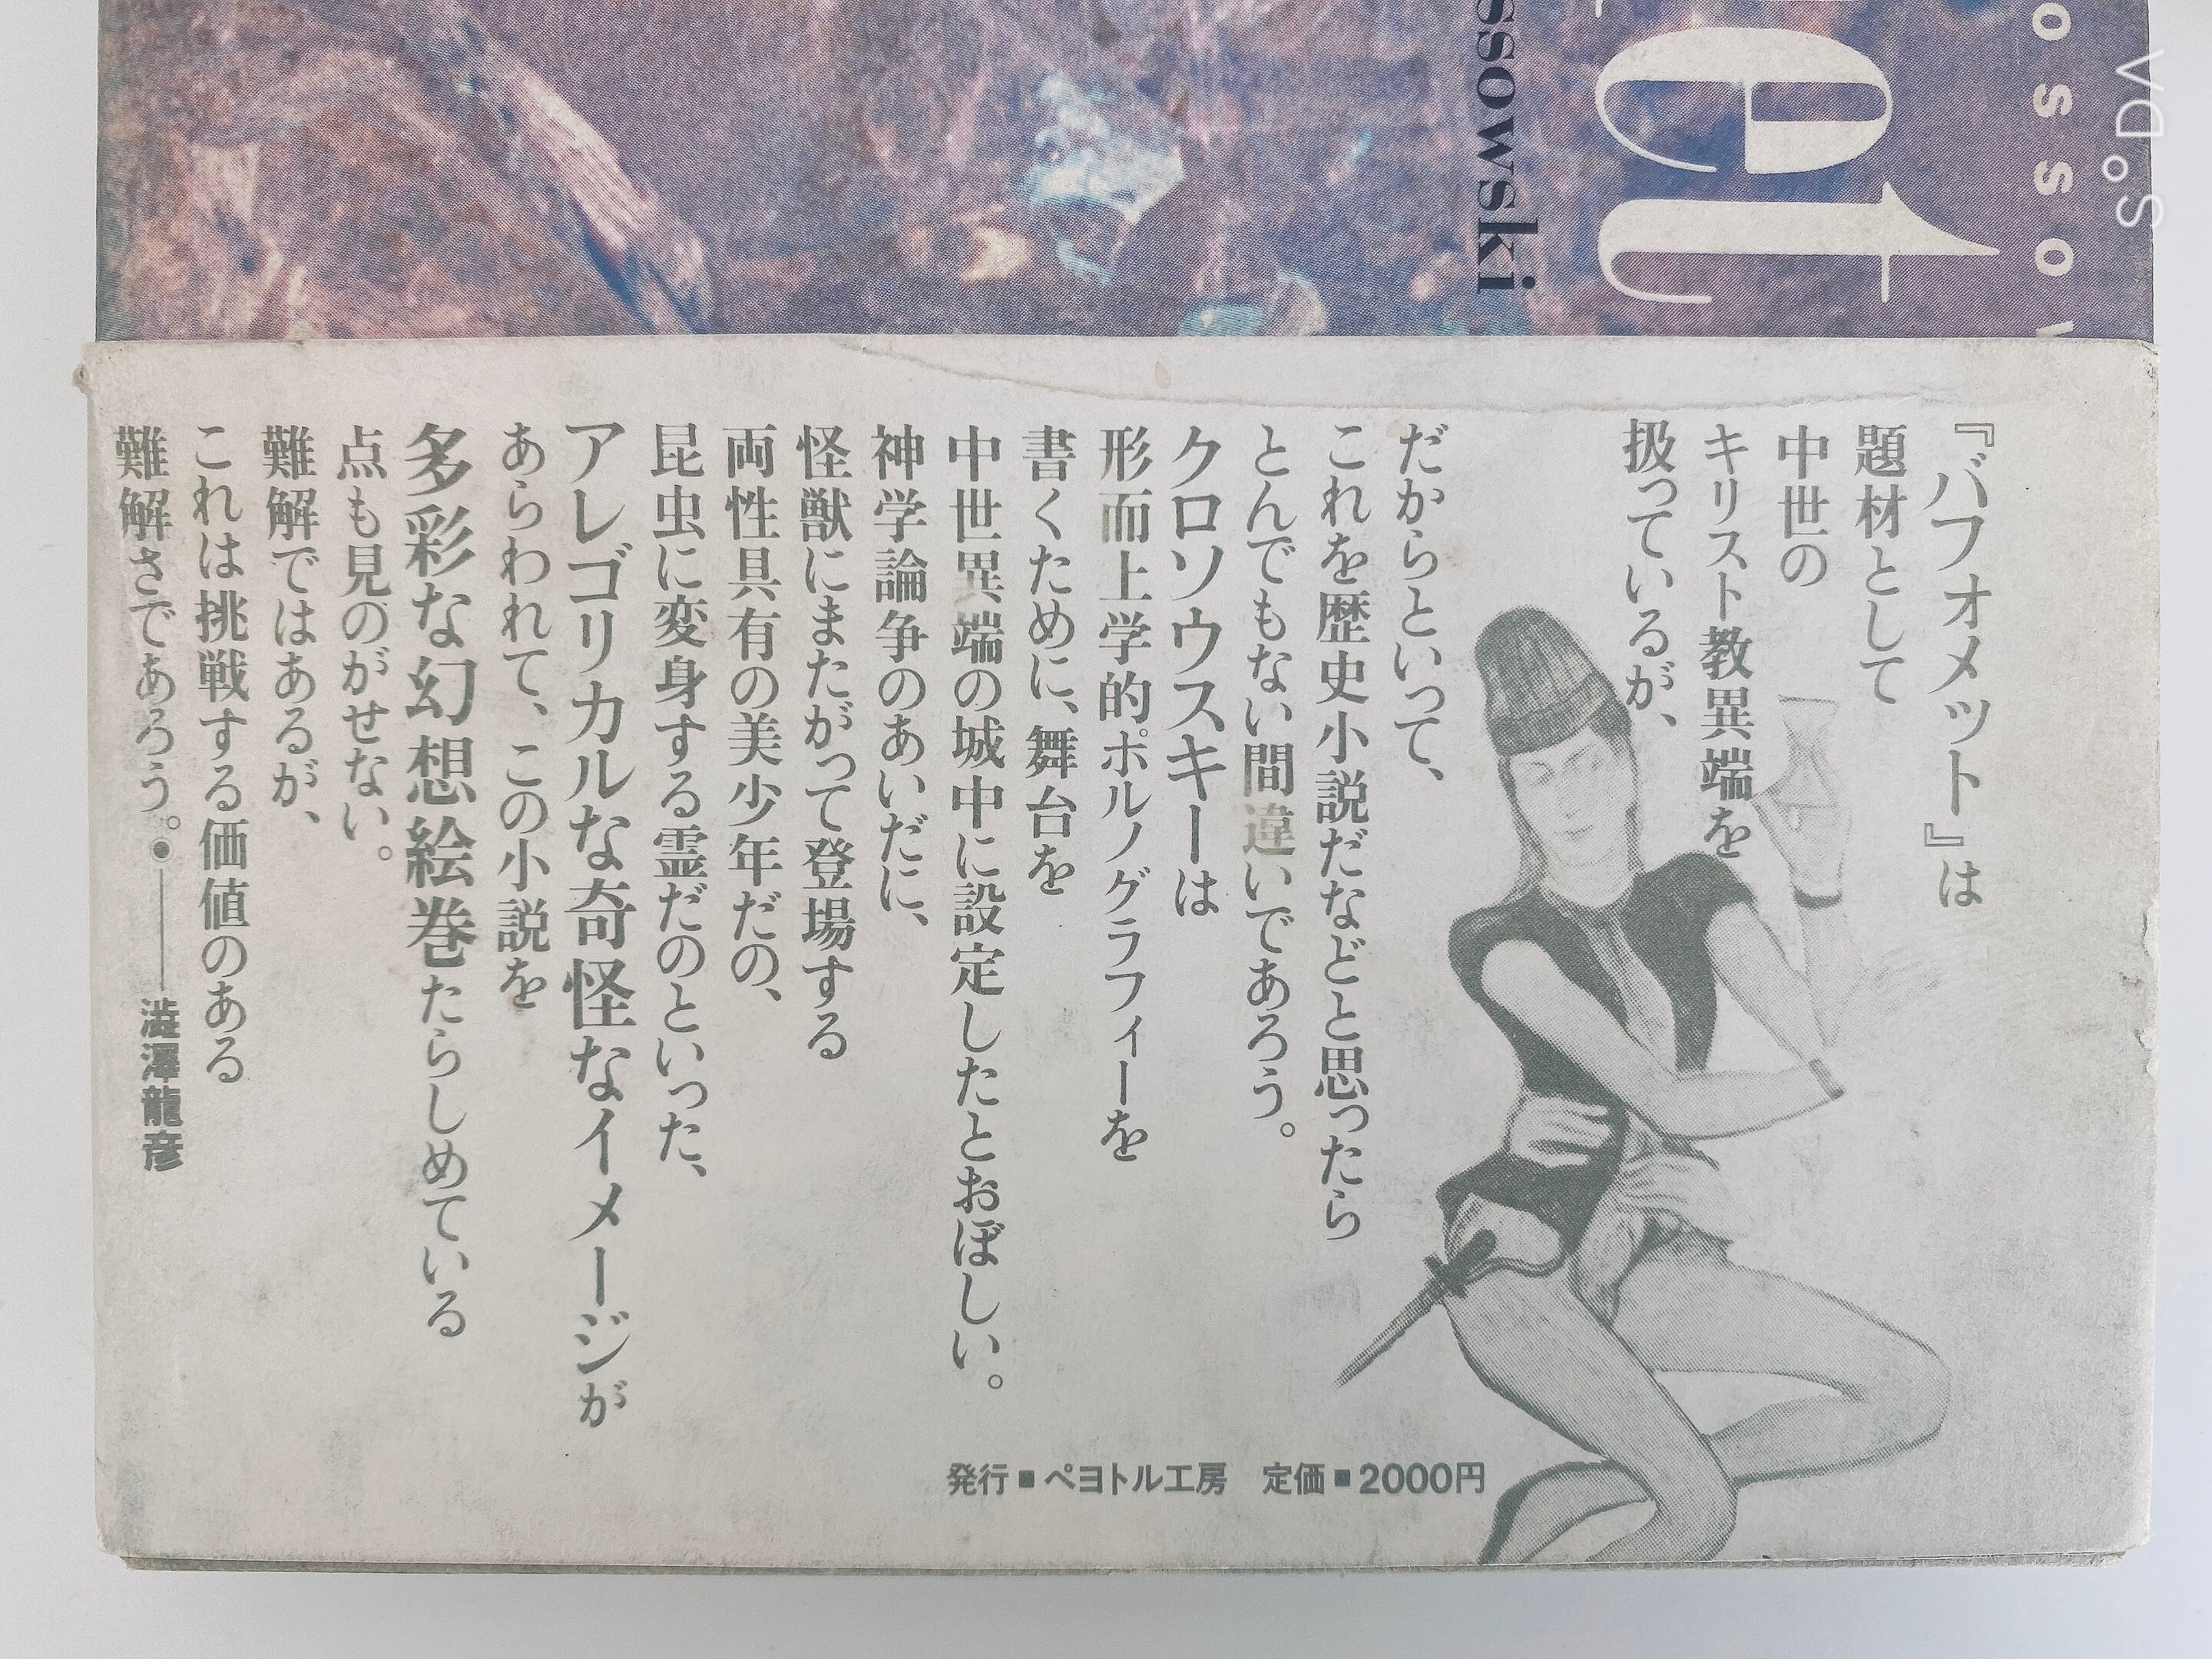 ssowski
et
osso
『バフォメット』は
題材として
中世の
キリスト教異端を
扱っているが、
だからといって、
これを歴史小説だなどと思ったら
とんでもない間違いであろう。
クロソウスキーは
形而上学的ポルノグラフィーを
書くために、舞台を
中世異端の城中に設定したとおぼしい。
神学論争のあいだに、
怪獣にまたがって登場する
両性具有の美少年だの、
昆虫に変身する霊だのといった、
アレゴリカルな奇怪なイメージが
あらわれて、この小説を
多彩な幻想絵巻たらしめている
点も見のがせない。
難解ではあるが、
これは挑戦する価値のある
難解さであろう。●――澁澤龍彦
発行■ペヨトル工房　定価■2000円